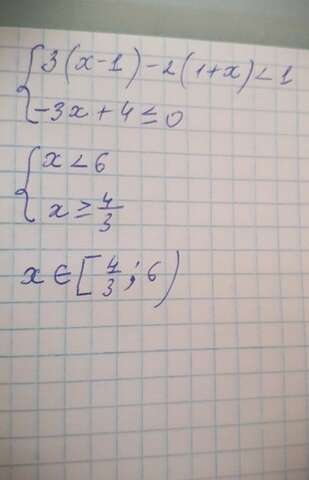 3(x-1)-2(1+x)<1
-3x+4≤0
x<6
x≥4/3
x∈[4/3;6)